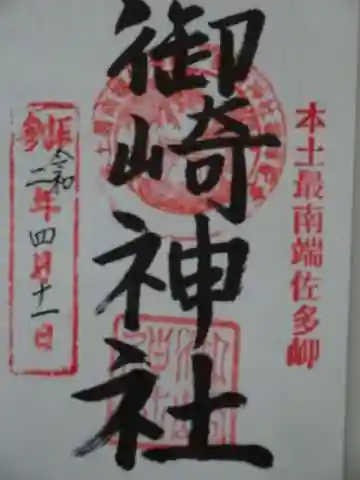 本土最南端佐多岬
御崎神社
令和二年四月十一日